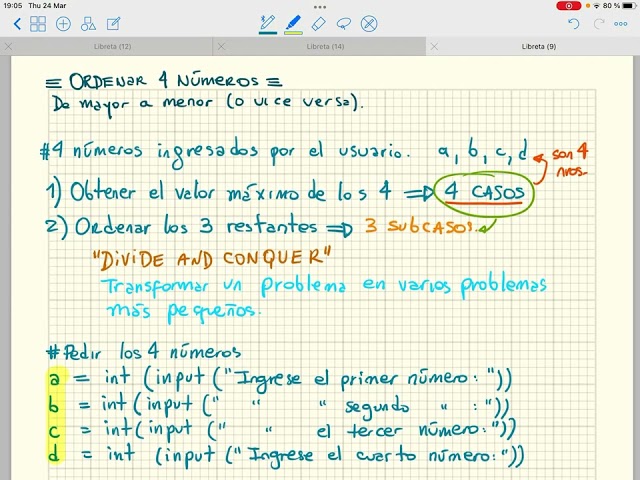 19:05 Thu 24 Mar
80 %
Libreta (12)
Libreta (14)
Libreta (9)
≡ ORDENAR 4 NÚMEROS ≡
De mayor a menor (o vice versa).
#4 números ingresados por el usuario. a, b, c, d son 4 nros.
1) Obtener el valor máximo de los 4 ⇒ 4 CASOS
2) Ordenar los 3 restantes ⇒ 3 subcasos.
"DIVIDE AND CONQUER"
Transformar un problema en varios problemas
más pequeños.
#Pedir los 4 números
a = int (input ("Ingrese el primer número: "))
b = int (input (" " " segundo " : "))
c = int(input (" " el tercer número: "))
d = int (input ("Ingrese el cuarto número: "))